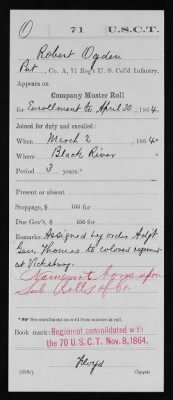 O | 71 | U.S.C.T.
Robert Ogden
Pvt., Co. A, 71 Reg't U. S. Col'd Infantry.
Appears on
Company Muster Roll
for Enrollment to April 30, 1864.
Joined for duty and enrolled:
When March 2, 1864
Where Black River
Period 3 years.*
Present or absent
Stoppage, $ 100 for
Due Gov't, $ 100 for
Remarks: Assigned by order Adjt
Genl Thomas to colored regiment
at Vicksburg.
Name not borne upon
Sub Rolls of Co.
Book mark: Regiment consolidated with
the 70 U.S.C.T. Nov. 8, 1864.
Floyd
(358c) Copyist.